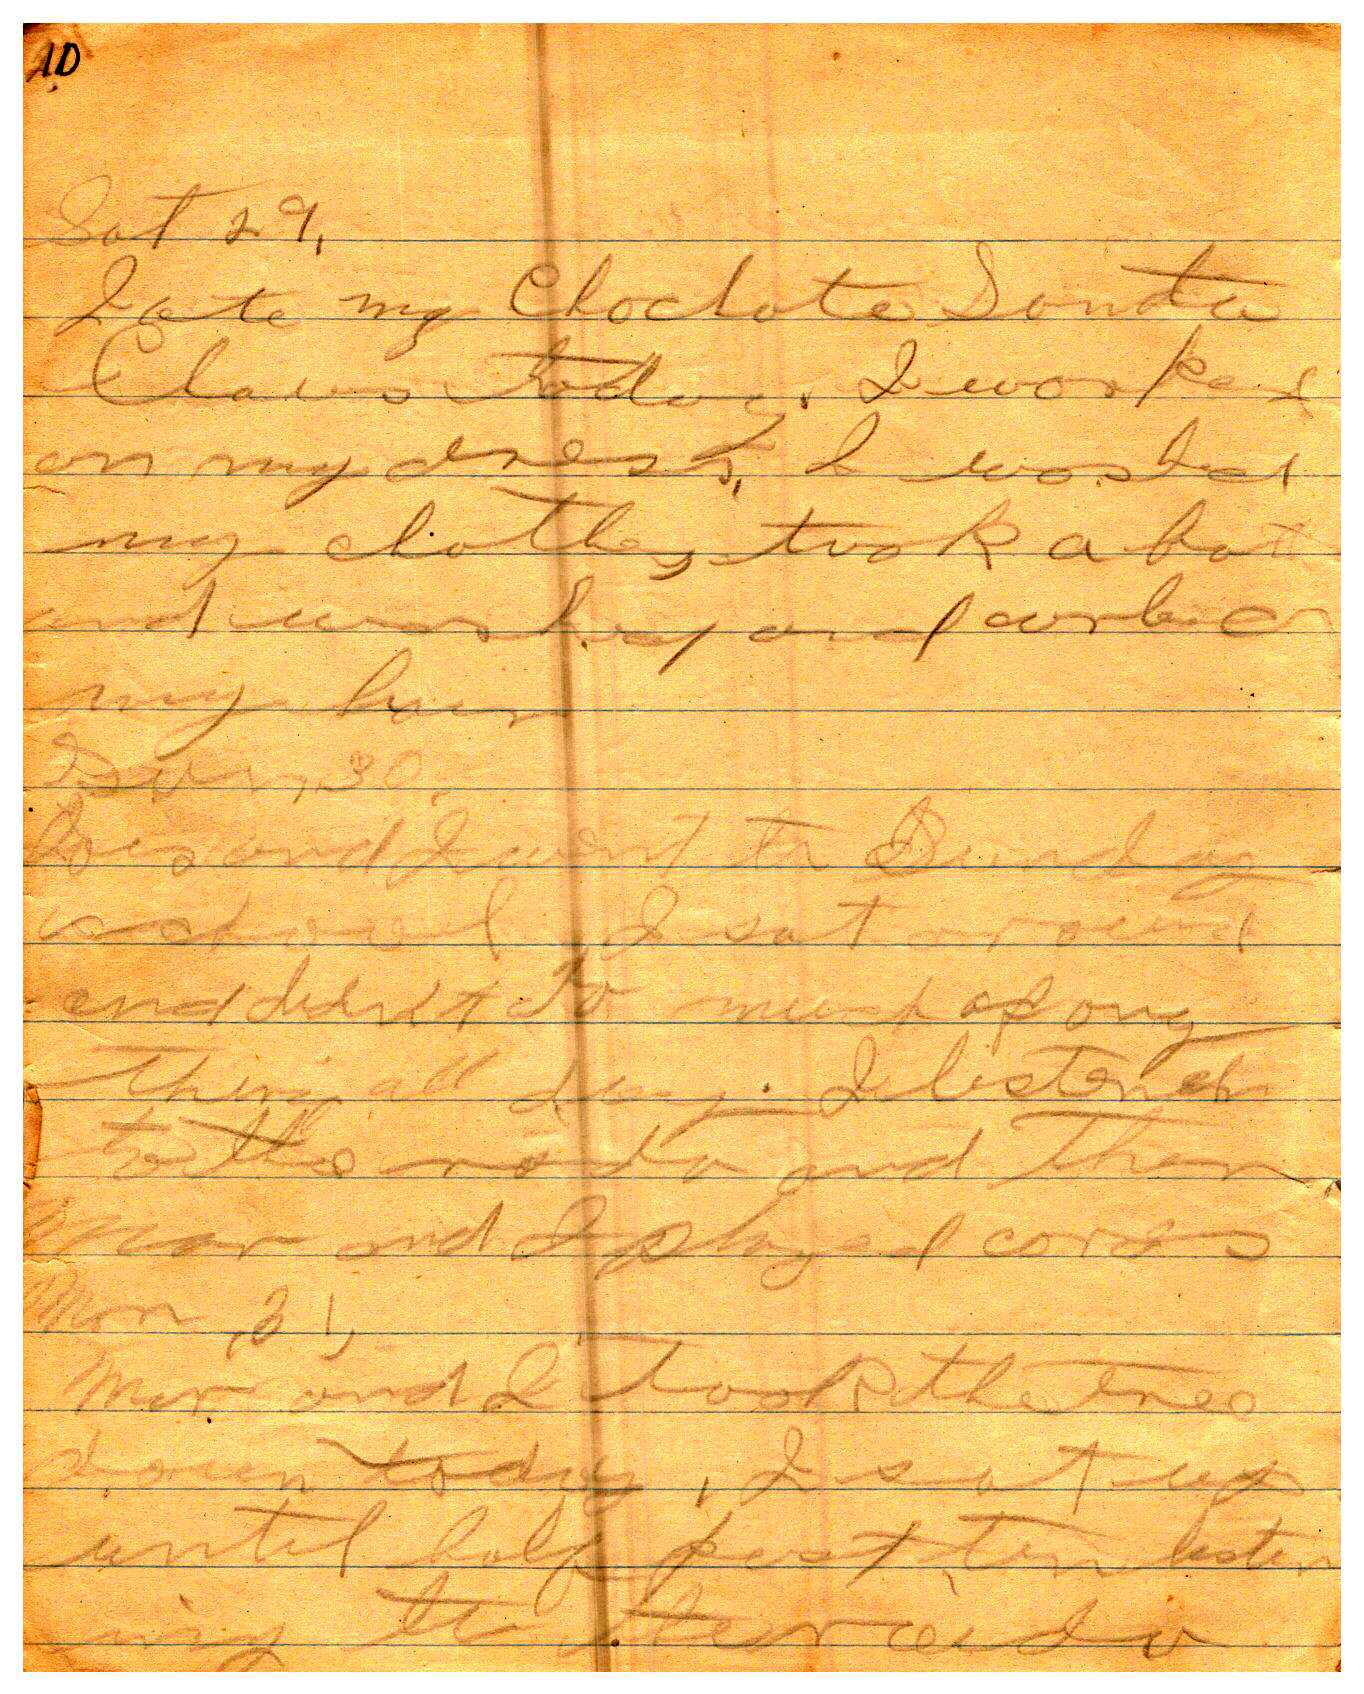 10
Sat 29,
I ate my Choclate Santa
Claus today. I worked
on my dress, I washed
my clothes, took a bath
and washed and curled
my hair
Sun, 30,
Lois and I went to Sunday
school, I sat around
and didn't do much of any
thing all day. I listened
to the radio and then
Mar and I played cards
Mon, 31,
Mar and I took the tree
down today, I sat up
until half past ten listen
ing to the raido